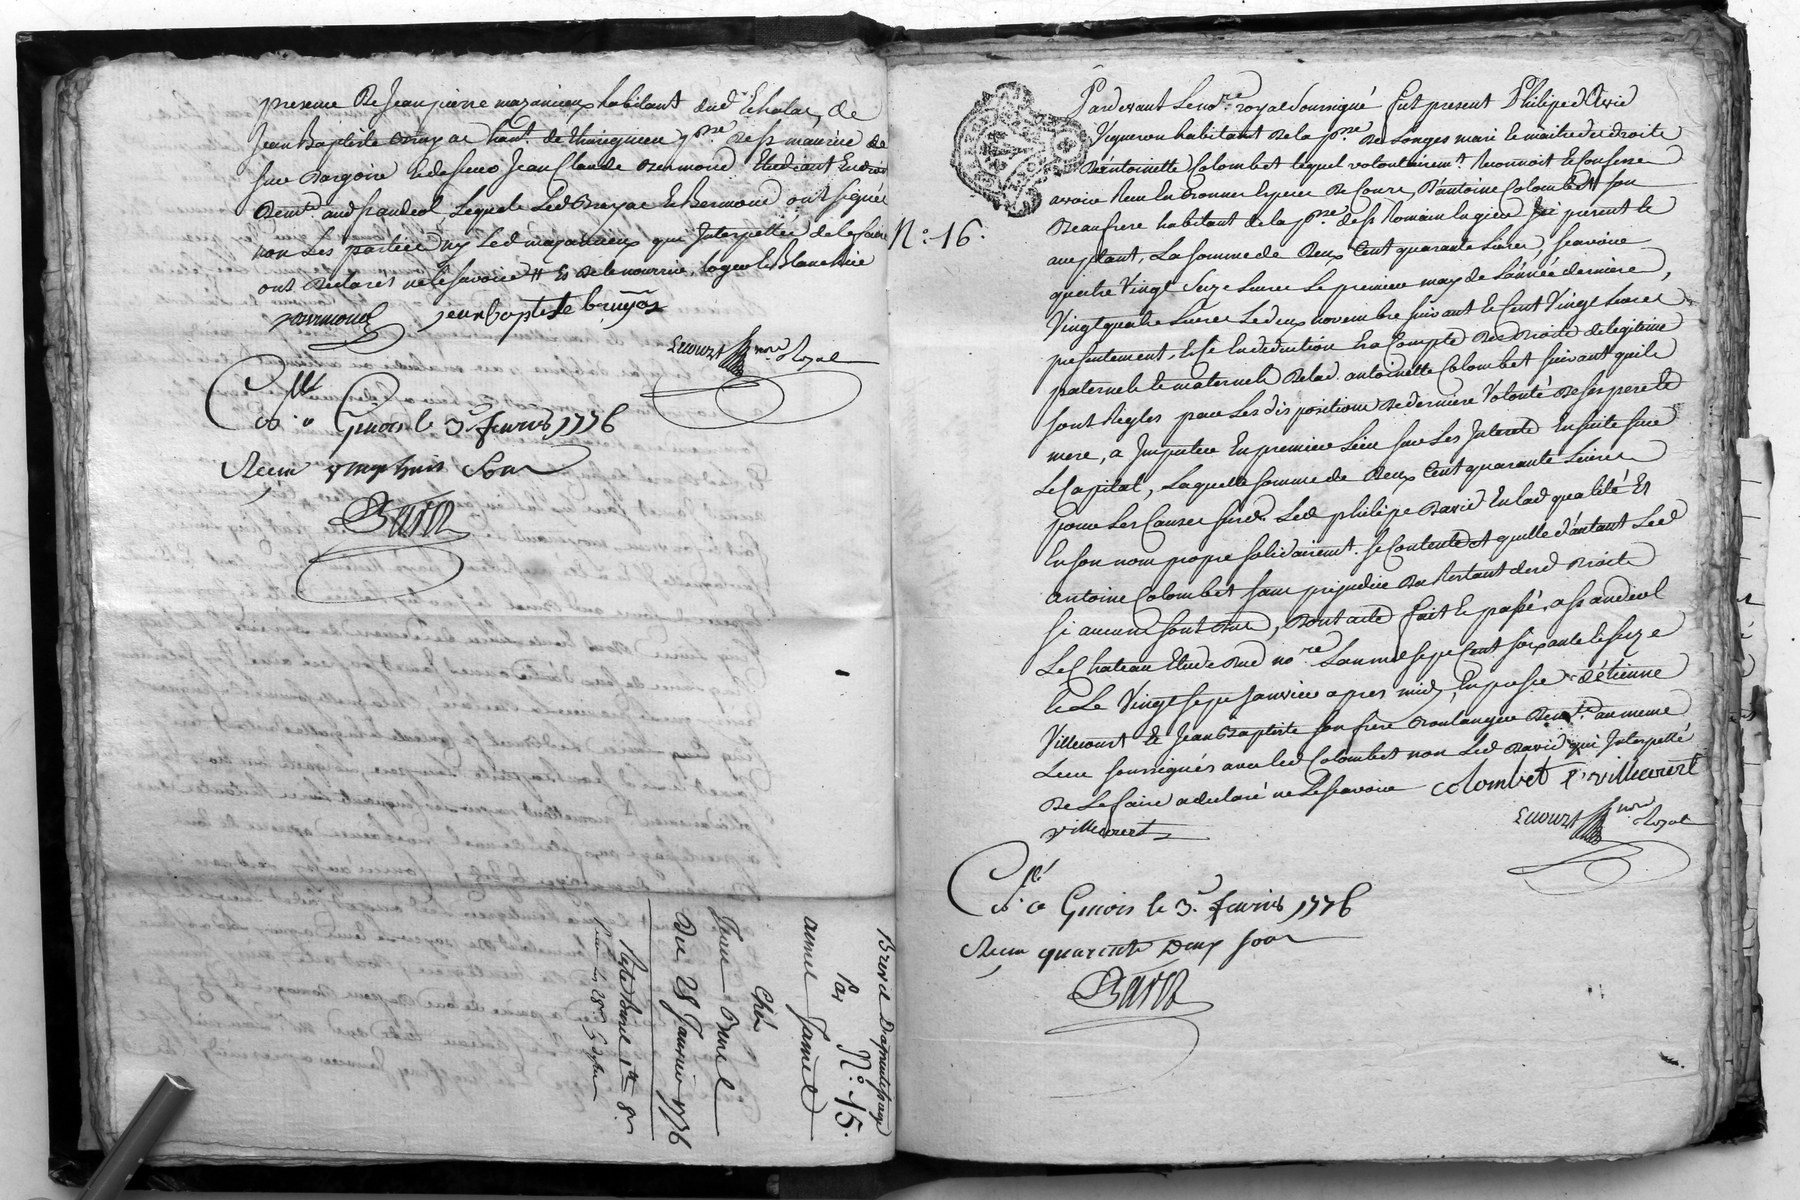 presence De Jean pierre mazanieux habitant dud Echalas, de
Jean Baptiste bruyas hant. de Thurigneu psse De st maurice de
sur Dargoire Et de sieur Jean Claude Bermond Etudiant En droit
Demt. aud st andeol lequels Led Bruyas Et Bermond ont signés
non Les parties ny Led mazanieux qui Interpellés de le faire
ont Déclarés ne le scavoir # Et De le nourrir, loger Et Blanchir
Bermond jean baptiste bruyas
Enourst nore Royal
Cllé
a Givors le 3. fevrier 1776
Recu vingt huit sous
Baron
Brevet D'aprentissage
No. 15.
Par
annee Jamet
Chés
Du 28 Janvier 1776
No. 16.
Pardevant Le nore. royal soussigné fut present Philipe David
Vigneron habitant De la psse De Longes mari Et maitre des droits
D'entoinette Colombet lequel volontairemt. Reconnoit Et Confesse
avoir Reçu En Bonnes Especes De Cours, D'antoine Colombet son
Beaufrere habitant de la psse de st Romain En gier Ici present Et
aceptant, La somme de Deux Cent quarante Livres, scavoir
quatre Vingt seize Livres Le premier may de L'année derniere,
Vingt quatre Livres Le deux novembre suivant Et Cent Vingt Livres
presentement, Et Ce En deduction Et a Compte Des Droits de legitime
paternels Et maternels De lad. antoinette Colombet suivant quils
sont Regles par Les dispositions De derniere Volonté De ses pere Et
mere, a Imputer En premier Lieu sur Les Interets Ensuite sur
Le Capital, Laquelle somme de Deux Cent quarante Livres
pour Les Causes susd. Led philipe David En lad qualité Et
En son nom propre solidairemt. se Contente Et quitte d'autant Led
antoine Colombet sans préjudice Du Restant desd Droits
si aucuns sont Dus, Dont acte fait Et passé, a st andeol
Le Chateau Etude Dud nore L'an mil sept Cent soixante Et seize
Et Le Vingt sept Janvier apres midy, En presce d'Etienne
Villecourt Et Jean Baptiste son frere Boulangers Demts. au meme
Lieu soussignés avec led Colombet non Led David qui Interpellé
De Le faire a declaré ne Le scavoir colombet E villecourt
villecourt
Enourst nore Royal
Cllé
a Givors le 3. fevrier 1776
Recu quarente Deux sous
Baron